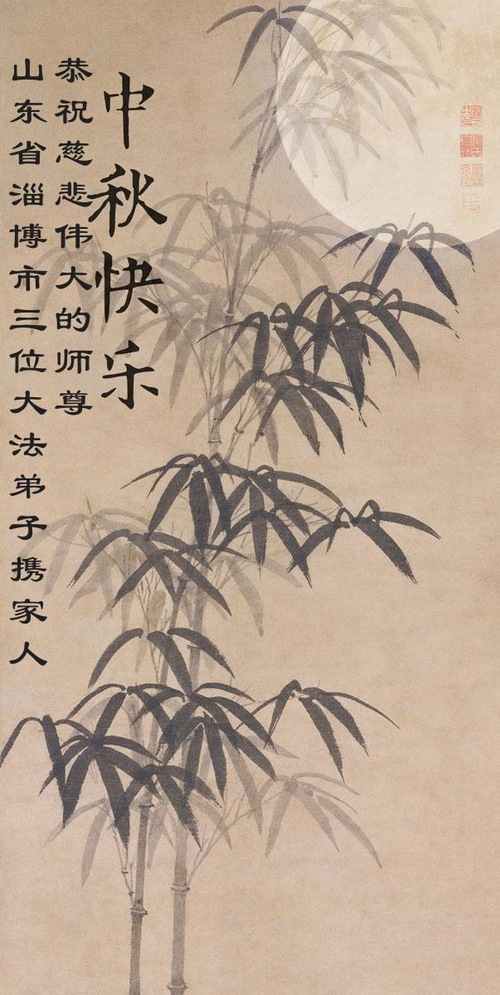 中秋快乐
恭祝慈悲伟大的师尊
山东省淄博市三位大法弟子携家人